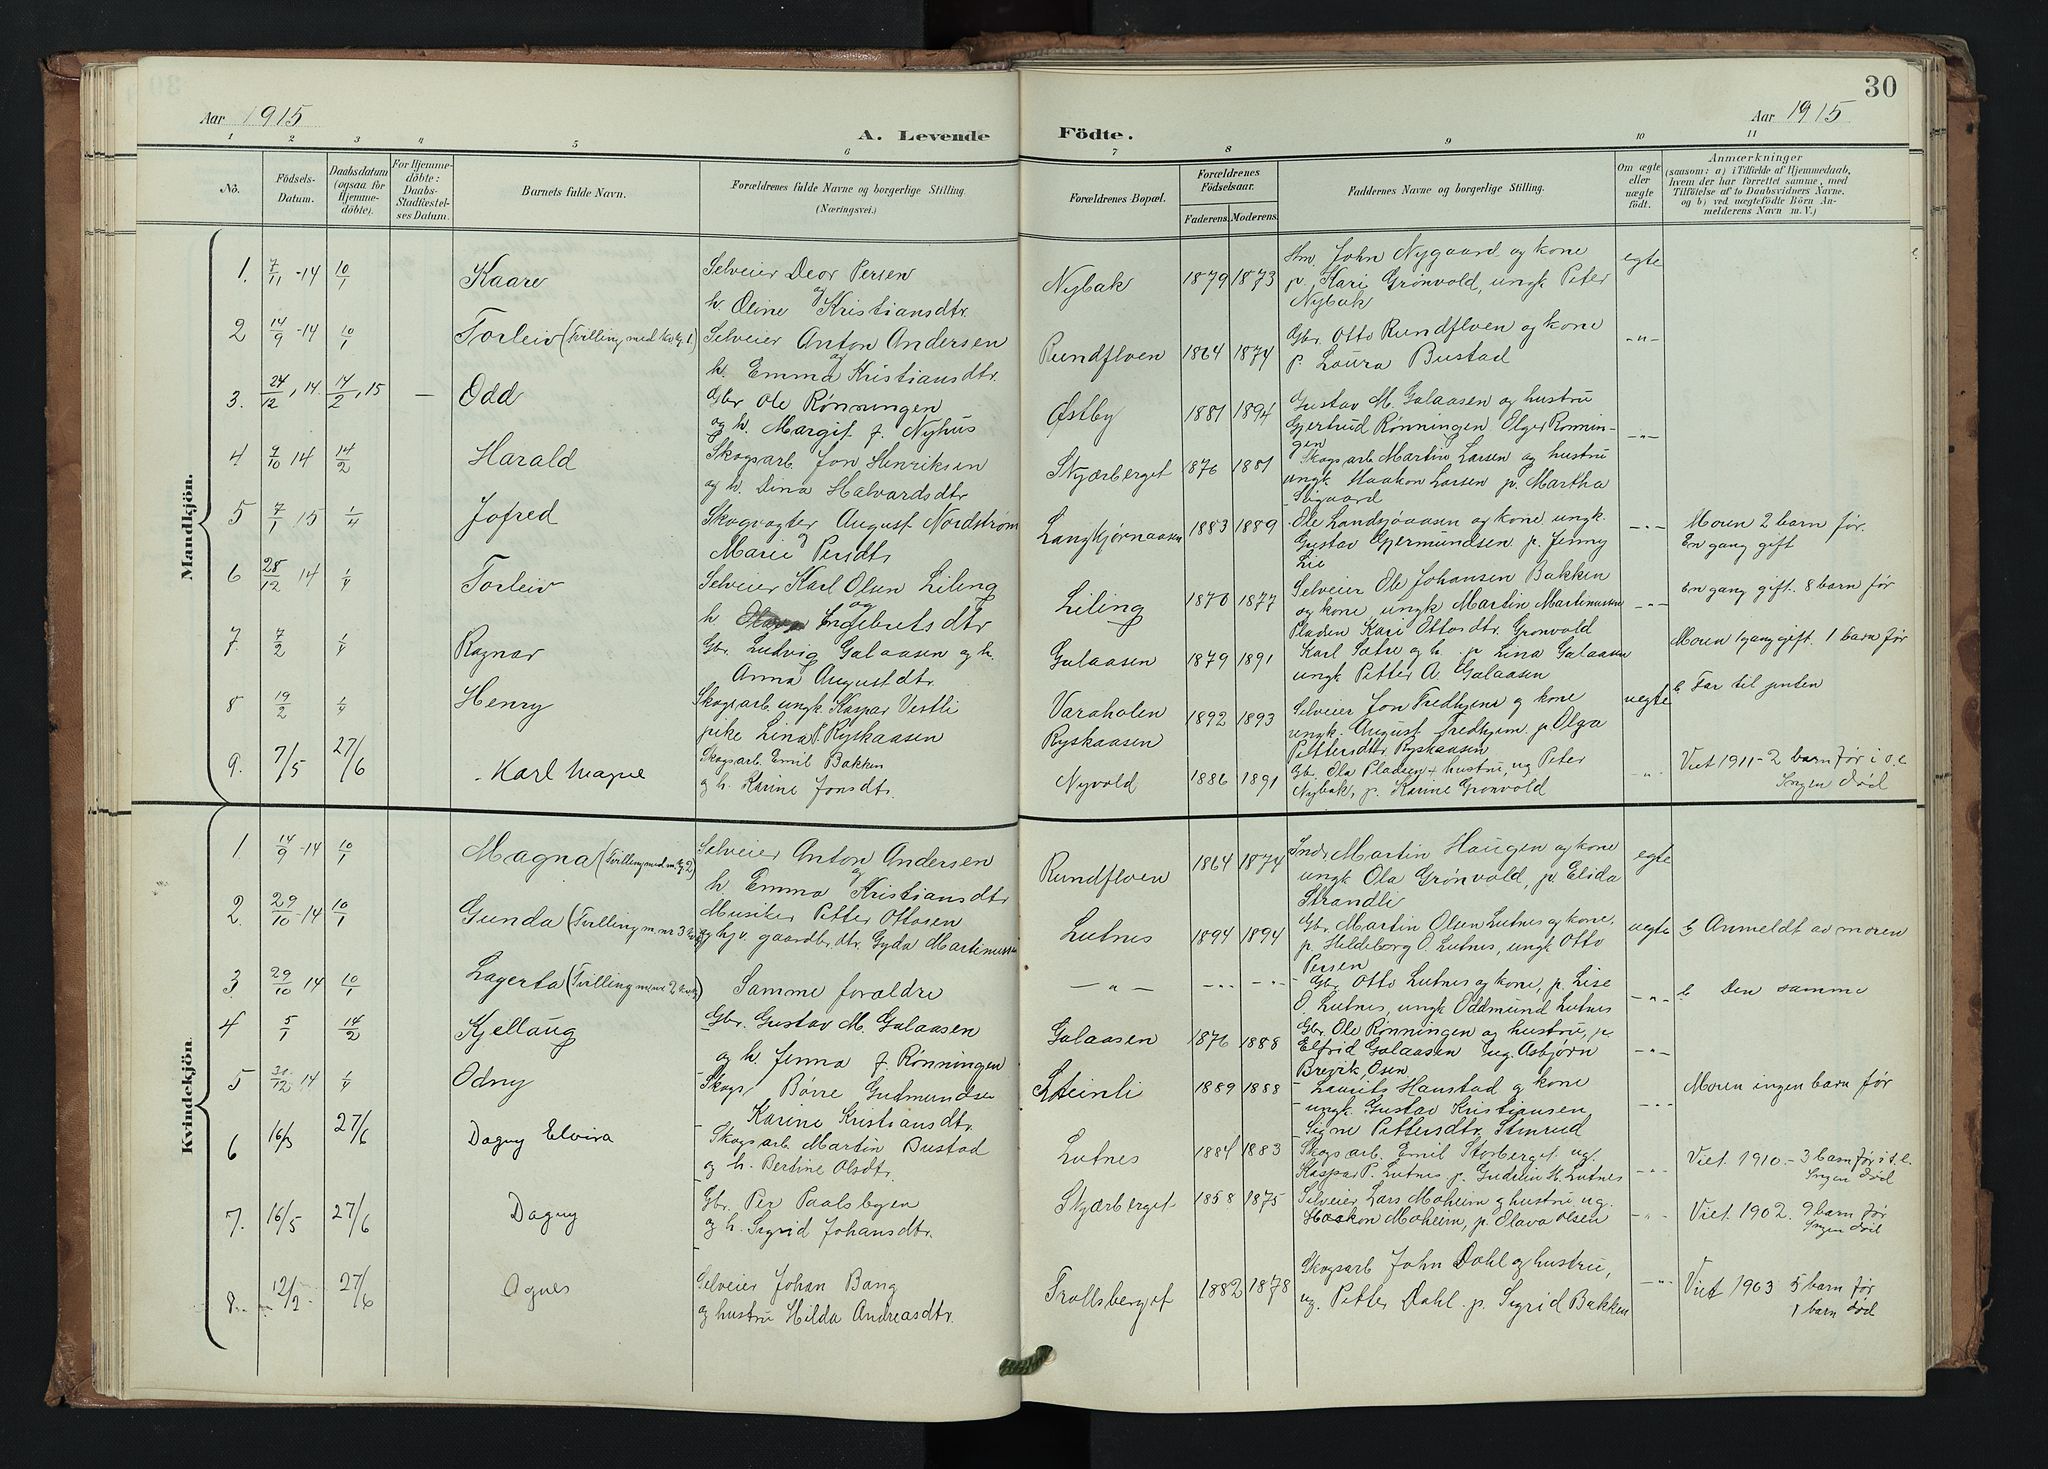 30
Aar 1915
A. Levende Födte.
Aar 1915
1 2 3 4 5 6 7 8 9 10 11
No.
Födsels-Datum.
Daabsdatum (ogsaa for Hjemme-döbte).
For Hjemme-döbte: Daabs-Stadfæstel-ses Datum.
Barnets fulde Navn.
Forældrenes fulde Navne og borgerlige Stilling.
(Næringsvei.)
Forældrenes Bopæl.
Forældrenes Födselsaar.
Faderens. Moderens.
Faddernes Navne og borgerlige Stilling.
Om ægte eller uægte födt.
Anmærkninger
(saasom: a) i Tilfælde af Hjemmedaab,
hvem der har forrettet samme, med
Tilföielse af to Daabsvidners Navne.
og b) ved uægtefödte Börn An-
melderens Navn m. V.)
Mandkjön.
1. 7/11 -14 10/1 Kaare
Selveier Deor Persen
og
h. Oline Kristiansdtr.
Nybak 1879 1873
John Nygaard og kone
p. Kari Grönvold, ungk Peter
Nybak
egte
2 14/9 -14 10/1 Torleiv (Tvilling med kv. 1)
Selveier Anton Andersen
og
h. Emma Kristiansdtr.
Rundfloen 1864 1874
Gbr. Otto Rundfloen og kone
p. Laura Bustad
-"-
3. 24/12, 14 14/2, 15 — Odd
Gbr Ole Rønningen
og h. Margit f. Nyhus
Østby 1881 1894
Gustav M. Galaasen og hustru
Gjertrud Rønningen Elger Rønnin-
gen
-"-
4 7/10 14 14/2 Harald
Skogsarb. Jon Henriksen
og h. Dina Halvardsdtr
Skjærberget 1876 1881
Skogsarb Martin Larsen og hustru
ungk Haakon Larsen p. Martha
5 7/1 15 1/4 Jofred
Skogvogter August Nordstrøm
og
Marie Persdtr
Langkjørnaasen 1883 1889
Ole Landsjøaasen og kone ungk.
Gustav Gjermundsen p. Jenny
Lie
-"-
Moren 2 barn før.
En gang gift
6 28/12 14 1/4 Torleiv
Selveier Karl Olsen Liling
og
h Engebretsdtr
Liling 1870 1877
Selveier Ole Johansen Bakken
og kone ungk Martin Martinussen
Pladsen Kari Ottosdtr. Grønvold
-"-
En gang gift. 8 barn før
7. 7/2 1/4 Ragnar
Gbr. Ludvig Galaasen og h.
Anna Augustdtr.
Galaasen 1879 1891
Karl Sætre og h. p Lina Galaasen
ungk Petter A. Galaasen
Moren 1 gang gift. 1 barn før
8 19/2 1/4 Henry
Skogsarb ungk. Kaspar Vestli
pike Lina P. Ryskaasen
Varaholen
Ryskaasen
1892 1893
Selveier Jon Fredhjem og kone
ungk. August Fredhjem. p. Olga
Pettersdtr Ryskaasen
uegte
b Far til
9. 7/5 27/6 Karl Magne
Skogsarb Emil Bakken
og h. Karine Jonsdtr.
Nyvold 1886 1891
Gb. Ola Pladsen + hustru, ug Peter
Nybak, p. Karine Grønvold
"
Viet 1911 - 2 barn før i
Ingen død
Kvindekjön.
1. 14/9 -14 10/1 Magna (Tvilling med m. 2)
Selveier Anton Andersen
og
h. Emma Kristiansdtr
Rundfloen 1864 1874
Martin Haugen og kone
ungk Ola Grønvold, p. Elida
Strandli
egte
2. 29/10 -14 10/1 Gunda (Tvilling m. nr 3)
Musiker Petter Ottosen
og hjv. gaardbr.dtr. Gyda Martinussen
Lutnes 1894 1894
Gbr. Martin Olsen Lutnes og kone,
p. Heldeborg O. Lutnes, ungk Otto
Persen
uegte
b Anmeldt av moren
3 29/10 14 10/1 Lagerta (Tvilling m. nr 2)
Samme foraldre
— " — -"- -"-
Gbr. Otto Lutnes og kone, p. Lise
O. Lutnes, ungk Oddmund Lutnes
-"-
b Den samme
4 5/1 14/2 Kjellaug
Gbr. Gustav M. Galaasen
og h Jenna f. Rønningen
Galaasen 1876 1888
Gbr. Ole Rønningen og hustru, p.
Elfrid Galaasen Ug. Asbjørn
Brevik, Osen
-"-
5 14 1/4 Odny
Skogs Børre Gudmundsen
Karine Kristiansdtr.
Steinli 1889 1888
Laurits Hanstad og kone
ungk. Gustav Kristiansen
Signe Pettersdtr. Stenrud
-"-
Moren ingen barn før
6 16/3 27/6 Dagny Elvira
Skogsarb Martin Bustad
og h. Bertine Olsdtr.
Lutnes 1884 1883
Skogsarb. Emil Storberget ug.
Kaspar P. Lutnes p. Gudrun H. Lutnes
Viet 1910 - 3 barn før i
Ingen død
7. 16/5 27/6 Dagny
Gbr. Per Paalsbyen
og h. Sigrid Johansdtr.
Skjærberget 1858 1875
Selveier Lars Moheim og hustru ug.
Haakon Moheim, p. Olava Olsen
-"-
Viet 1902. 9 barn før
Ingen død
8 12/2 27/6 Agnes
Selveier Johan Bang
og hustru Hilda Andreasdtr.
Trollsberget 1882 1878
Skogsarb John Dahl og hustru,
ug. Petter Dahl. p. Sigrid Bakken
-"-
Viet 1903 5 barn før
1 barn død